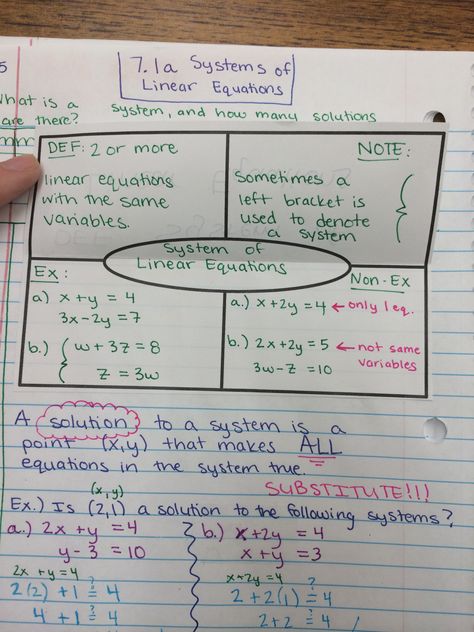 7.1a Systems of
Linear Equations
5
What is a system, and how many solutions
are there?
DEF: 2 or more
linear equations
with the same
variables.
NOTE:
Sometimes a
left bracket is
used to denote
a system
{
System of
Linear Equations
Ex:
a) x + y = 4
3x - 2y = 7
b.) { w + 3z = 8
z = 3w
Non-Ex
a.) x + 2y = 4 ← only 1 eq.
b.) 2x + 2y = 5 ← not same
variables
3w - z = 10
A solution to a system is a
point (x,y) that makes ALL
equations in the system true.
SUBSTITUTE!!!
(x,y)
Ex.) Is (2,1) a solution to the following systems?
a.) 2x + y = 4
y - 3 = 10
2x + y = 4
2(2) + 1 ≟ 4
4 + 1 ≟ 4
b.) x + 2y = 4
x + y = 3
x + 2y = 4
2 + 2(1) ≟ 4
2 + 2 ≟ 4